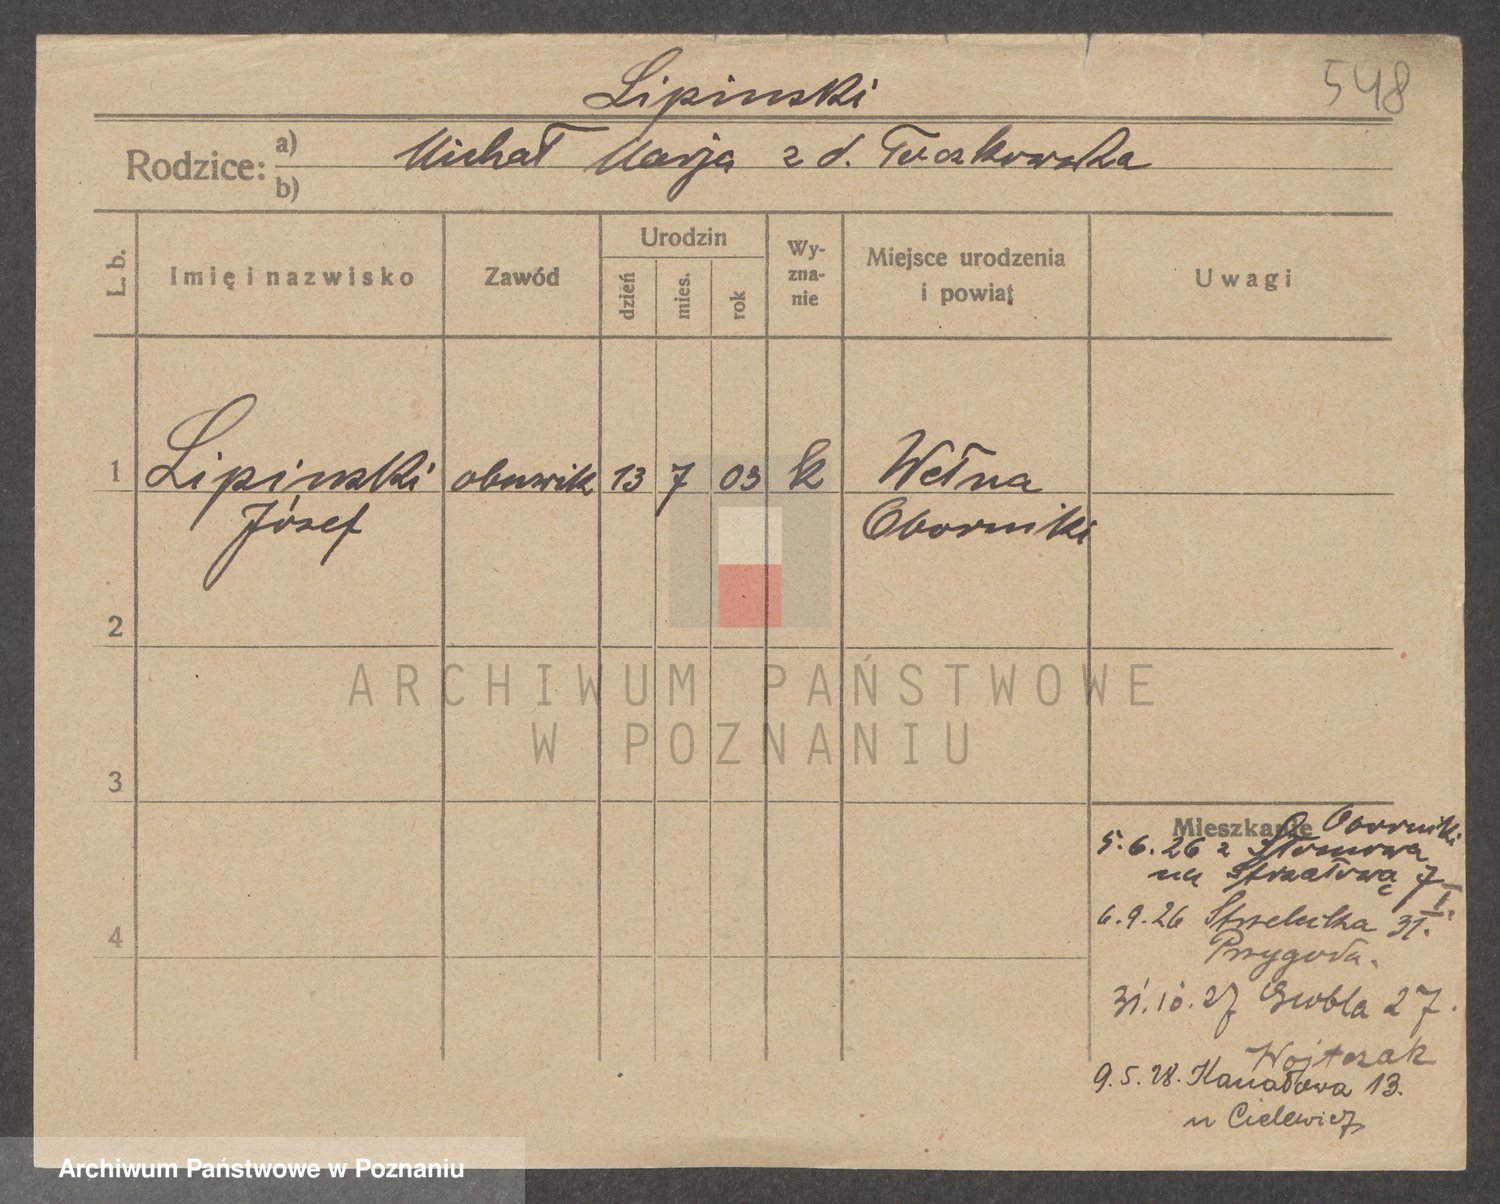 548
Lipinski
Rodzice: a) b)
Michał Marja z d. Tuczkowska
L. b.
Imię i nazwisko
Zawód
Urodzin
dzień
mies.
rok
Wy-
zna-
nie
Miejsce urodzenia
i powiat
Uwagi
1
Lipinski obuwnik 13 7 03 k Wełna
Józef Oborniki
2
ARCHIWUM PAŃSTWOWE
W POZNANIU
3
Mieszkanie Oborniki
5.6.26 z
na Strzałową 7
6.9.26 Strzelecka 31.
Przygoda.
31.10.27 Grobla 27.
Wojtczak
9.5.28. Kanałowa 13.
u Cielewicz
4
Archiwum Państwowe w Poznaniu